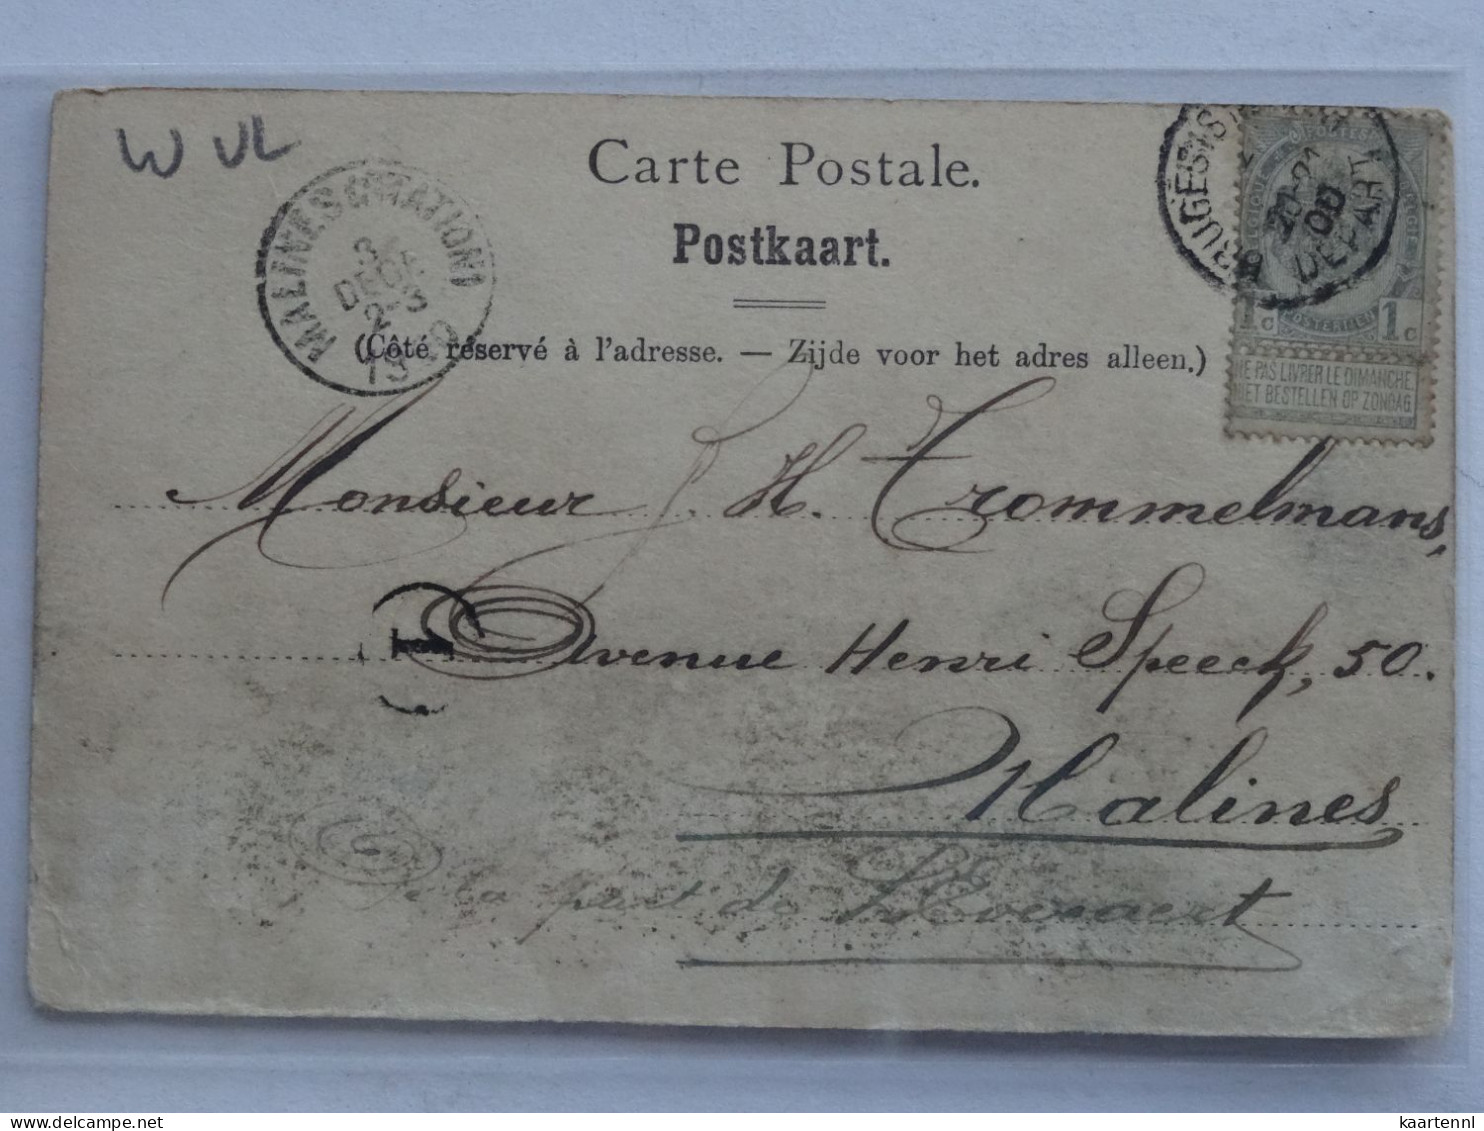 W VL
Carte Postale.
Postkaart.
(Côté réservé à l'adresse. — Zijde voor het adres alleen.)
MALINES (STATION)
3
DECE
2-3
1900
BRUGES
20-21
00
DEPART
1c POSTERIJEN 1c
NE PAS LIVRER LE DIMANCHE.
NIET BESTELLEN OP ZONDAG
Monsieur J. H. Trommelmans,
1
Avenue Henri Speeck, 50.
Malines
De la part de Everaert
kaartennl